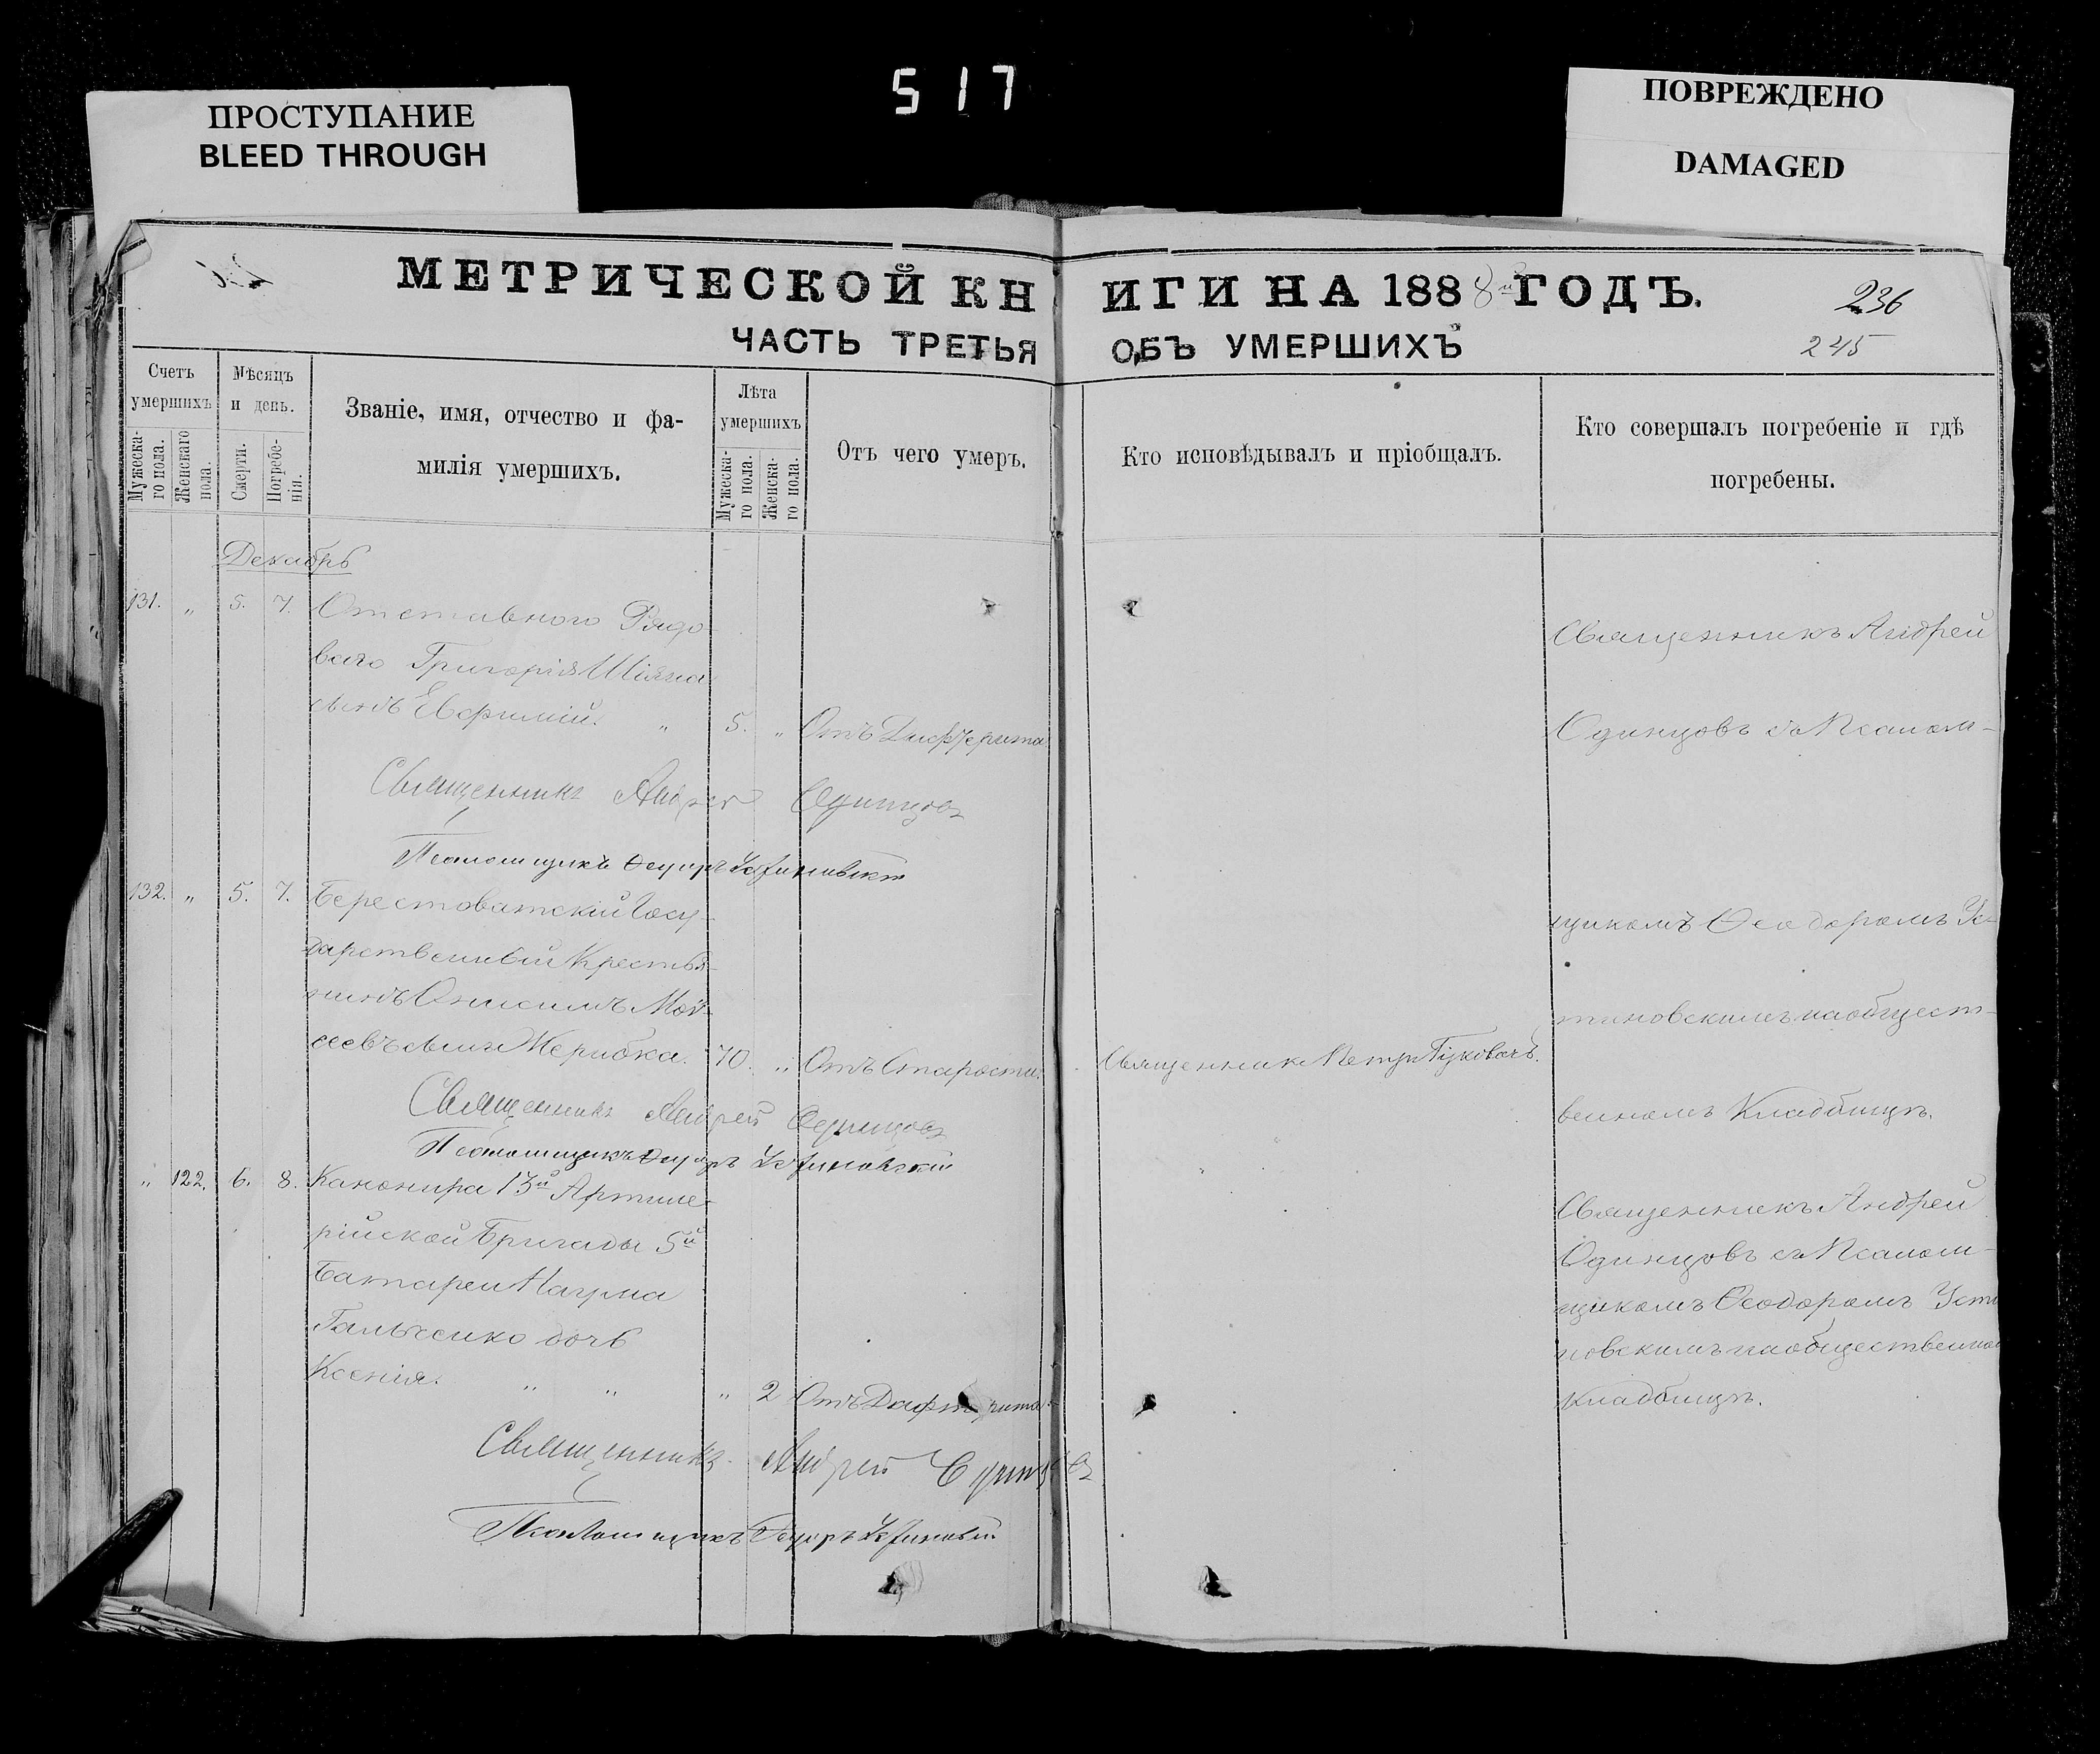 517
ПРОСТУПАНИЕ
BLEED THROUGH
ПОВРЕЖДЕНО
DAMAGED
МЕТРИЧЕСКОЙ КНИГИ НА 1888й ГОДЪ.
236
ЧАСТЬ ТРЕТЬЯ ОБЪ УМЕРШИХЪ
245
Счетъ умершихъ
Мужескаго пола.
Женскаго пола.
Мѣсяцъ и день.
Смерти.
Погребенія.
Званіе, имя, отчество и фамилія умершихъ.
Лѣта умершихъ
Мужескаго пола.
Женскаго пола.
Отъ чего умеръ.
Кто исповѣдывалъ и пріобщалъ.
Кто совершалъ погребеніе и гдѣ погребены.
Декабрь
131. „ 5. 7. Отставного Рядо-
ваго Григорія
сынъ Евфимій. „ 5. „ Отъ Дифтерита
Священникъ Андрей
Одинцовъ съ Псалом-
Священникъ Андрей Одинцовъ
Псаломщикъ Ѳеодоръ Устиновскій
132. „ 5. 7. Берестоватскій Госу-
дарственный Крестья-
нинъ Онисимъ Мои-
сеевъ сынъ 70. „ Отъ Старости.
Священникъ Петръ
щикомъ Ѳеодоромъ Ус-
тиновскимъ на общест-
венномъ Кладбищѣ.
Священникъ Андрей Одинцовъ
Псаломщикъ Ѳеодоръ Устиновскій
„ 122. 6. 8. Канонира 13й Артиле-
рійской Бригады 5й
Батареи Наума
Гальченко дочь
Ксенія. „ „ „ 2 Отъ Дифтерита
Священникъ Андрей
Одинцовъ съ Псалом-
щикомъ Ѳеодоромъ Усти
новскимъ на общественном
Кладбищѣ.
Священникъ Андрей Одинцовъ
Псаломщикъ Ѳеодоръ Устиновскій